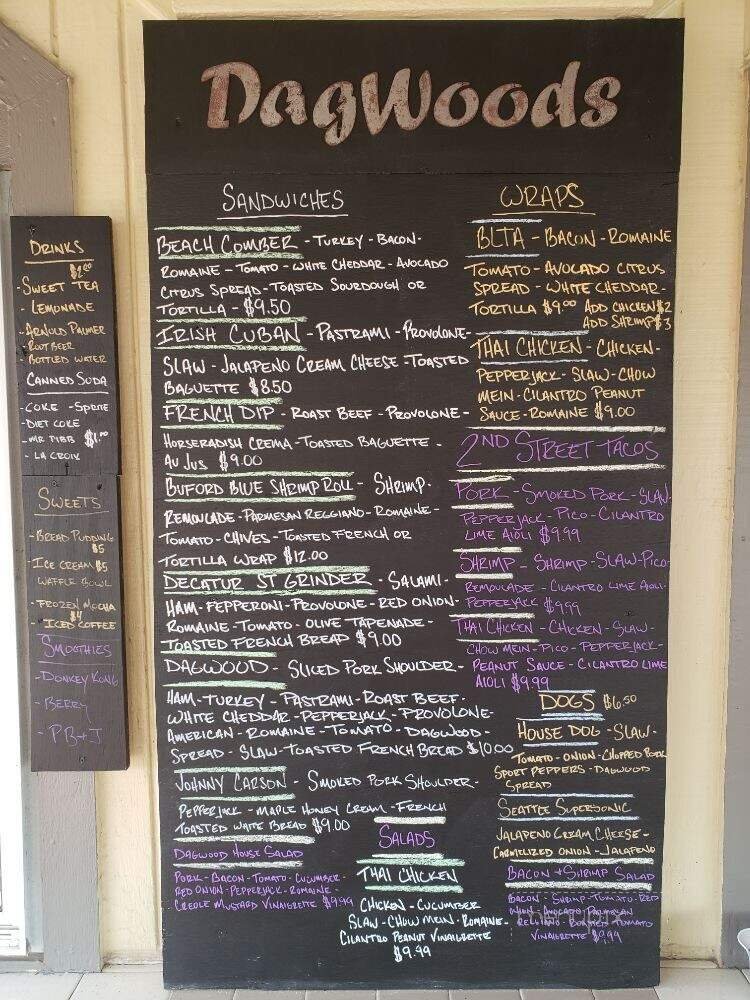 DagWoods
DRINKS
$2.00
-SWEET TEA
- LEMONADE
- ARNOLD PALMER
- ROOT BEER
- BOTTLED WATER
CANNED SODA
-COKE -SPRITE
-DIET COKE
-MR PIBB $1.00
- LA CROIX
SWEETS
-BREAD PUDDING
$5
-ICE CREAM $5
WAFFLE BOWL
-FROZEN MOCHA
$4
ICED COFFEE
SMOOTHIES
-DONKEY KONG
- BERRY
- PB+J
SANDWICHES
BEACH COMBER - TURKEY - BACON -
ROMAINE - TOMATO - WHITE CHEDDAR - AVOCADO
CITRUS SPREAD - TOASTED SOURDOUGH OR
TORTILLA - $9.50
IRISH CUBAN - PASTRAMI - PROVOLONE -
SLAW - JALAPENO CREAM CHEESE - TOASTED
BAGUETTE $8.50
FRENCH DIP - ROAST BEEF - PROVOLONE -
HORSERADISH CREMA - TOASTED BAGUETTE -
AU JUS $9.00
BUFORD BLUE SHRIMP ROLL - SHRIMP -
REMOULADE - PARMESAN REGGIANO - ROMAINE -
TOMATO - CHIVES - TOASTED FRENCH OR
TORTILLA WRAP $12.00
DECATUR ST GRINDER - SALAMI -
HAM - PEPPERONI - PROVOLONE - RED ONION -
ROMAINE - TOMATO - OLIVE TAPENADE -
TOASTED FRENCH BREAD $9.00
DAGWOOD - SLICED PORK SHOULDER -
HAM - TURKEY - PASTRAMI - ROAST BEEF -
WHITE CHEDDAR - PEPPERJACK - PROVOLONE -
AMERICAN - ROMAINE - TOMATO - DAGWOOD -
SPREAD - SLAW - TOASTED FRENCH BREAD $10.00
JOHNNY CARSON - SMOKED PORK SHOULDER -
PEPPERJACK - MAPLE HONEY CREAM - FRENCH
TOASTED WHITE BREAD $9.00
WRAPS
BLTA - BACON - ROMAINE
TOMATO - AVOCADO CITRUS
SPREAD - WHITE CHEDDAR -
TORTILLA $9.00 ADD CHICKEN $2
ADD SHRIMP $3
THAI CHICKEN - CHICKEN -
PEPPERJACK - SLAW - CHOW
MEIN - CILANTRO PEANUT
SAUCE - ROMAINE $9.00
2ND STREET TACOS
PORK - SMOKED PORK - SLAW -
PEPPERJACK - PICO - CILANTRO
LIME AIOLI $9.99
SHRIMP - SHRIMP - SLAW - PICO -
REMOULADE - CILANTRO LIME AIOLI -
PEPPERJACK $9.99
THAI CHICKEN - CHICKEN - SLAW -
CHOW MEIN - PICO - PEPPERJACK -
PEANUT SAUCE - CILANTRO LIME
AIOLI $9.99
DOGS $6.50
HOUSE DOG - SLAW -
TOMATO - ONION - CHOPPED PORK
SPORT PEPPERS - DAGWOOD
SPREAD
SEATTLE SUPERSONIC
JALAPENO CREAM CHEESE -
CARMELIZED ONION - JALAPENO
SALADS
DAGWOOD HOUSE SALAD
PORK - BACON - TOMATO - CUCUMBER -
RED ONION - PEPPERJACK - ROMAINE -
CREOLE MUSTARD VINAIGRETTE $9.99
THAI CHICKEN
CHICKEN - CUCUMBER
SLAW - CHOW MEIN - ROMAINE -
CILANTRO PEANUT VINAIGRETTE
$9.99
BACON + SHRIMP SALAD
BACON - SHRIMP - TOMATO - RED
ONION - AVOCADO - PARMESAN
REGGIANO - TOMATO
VINAIGRETTE $9.99